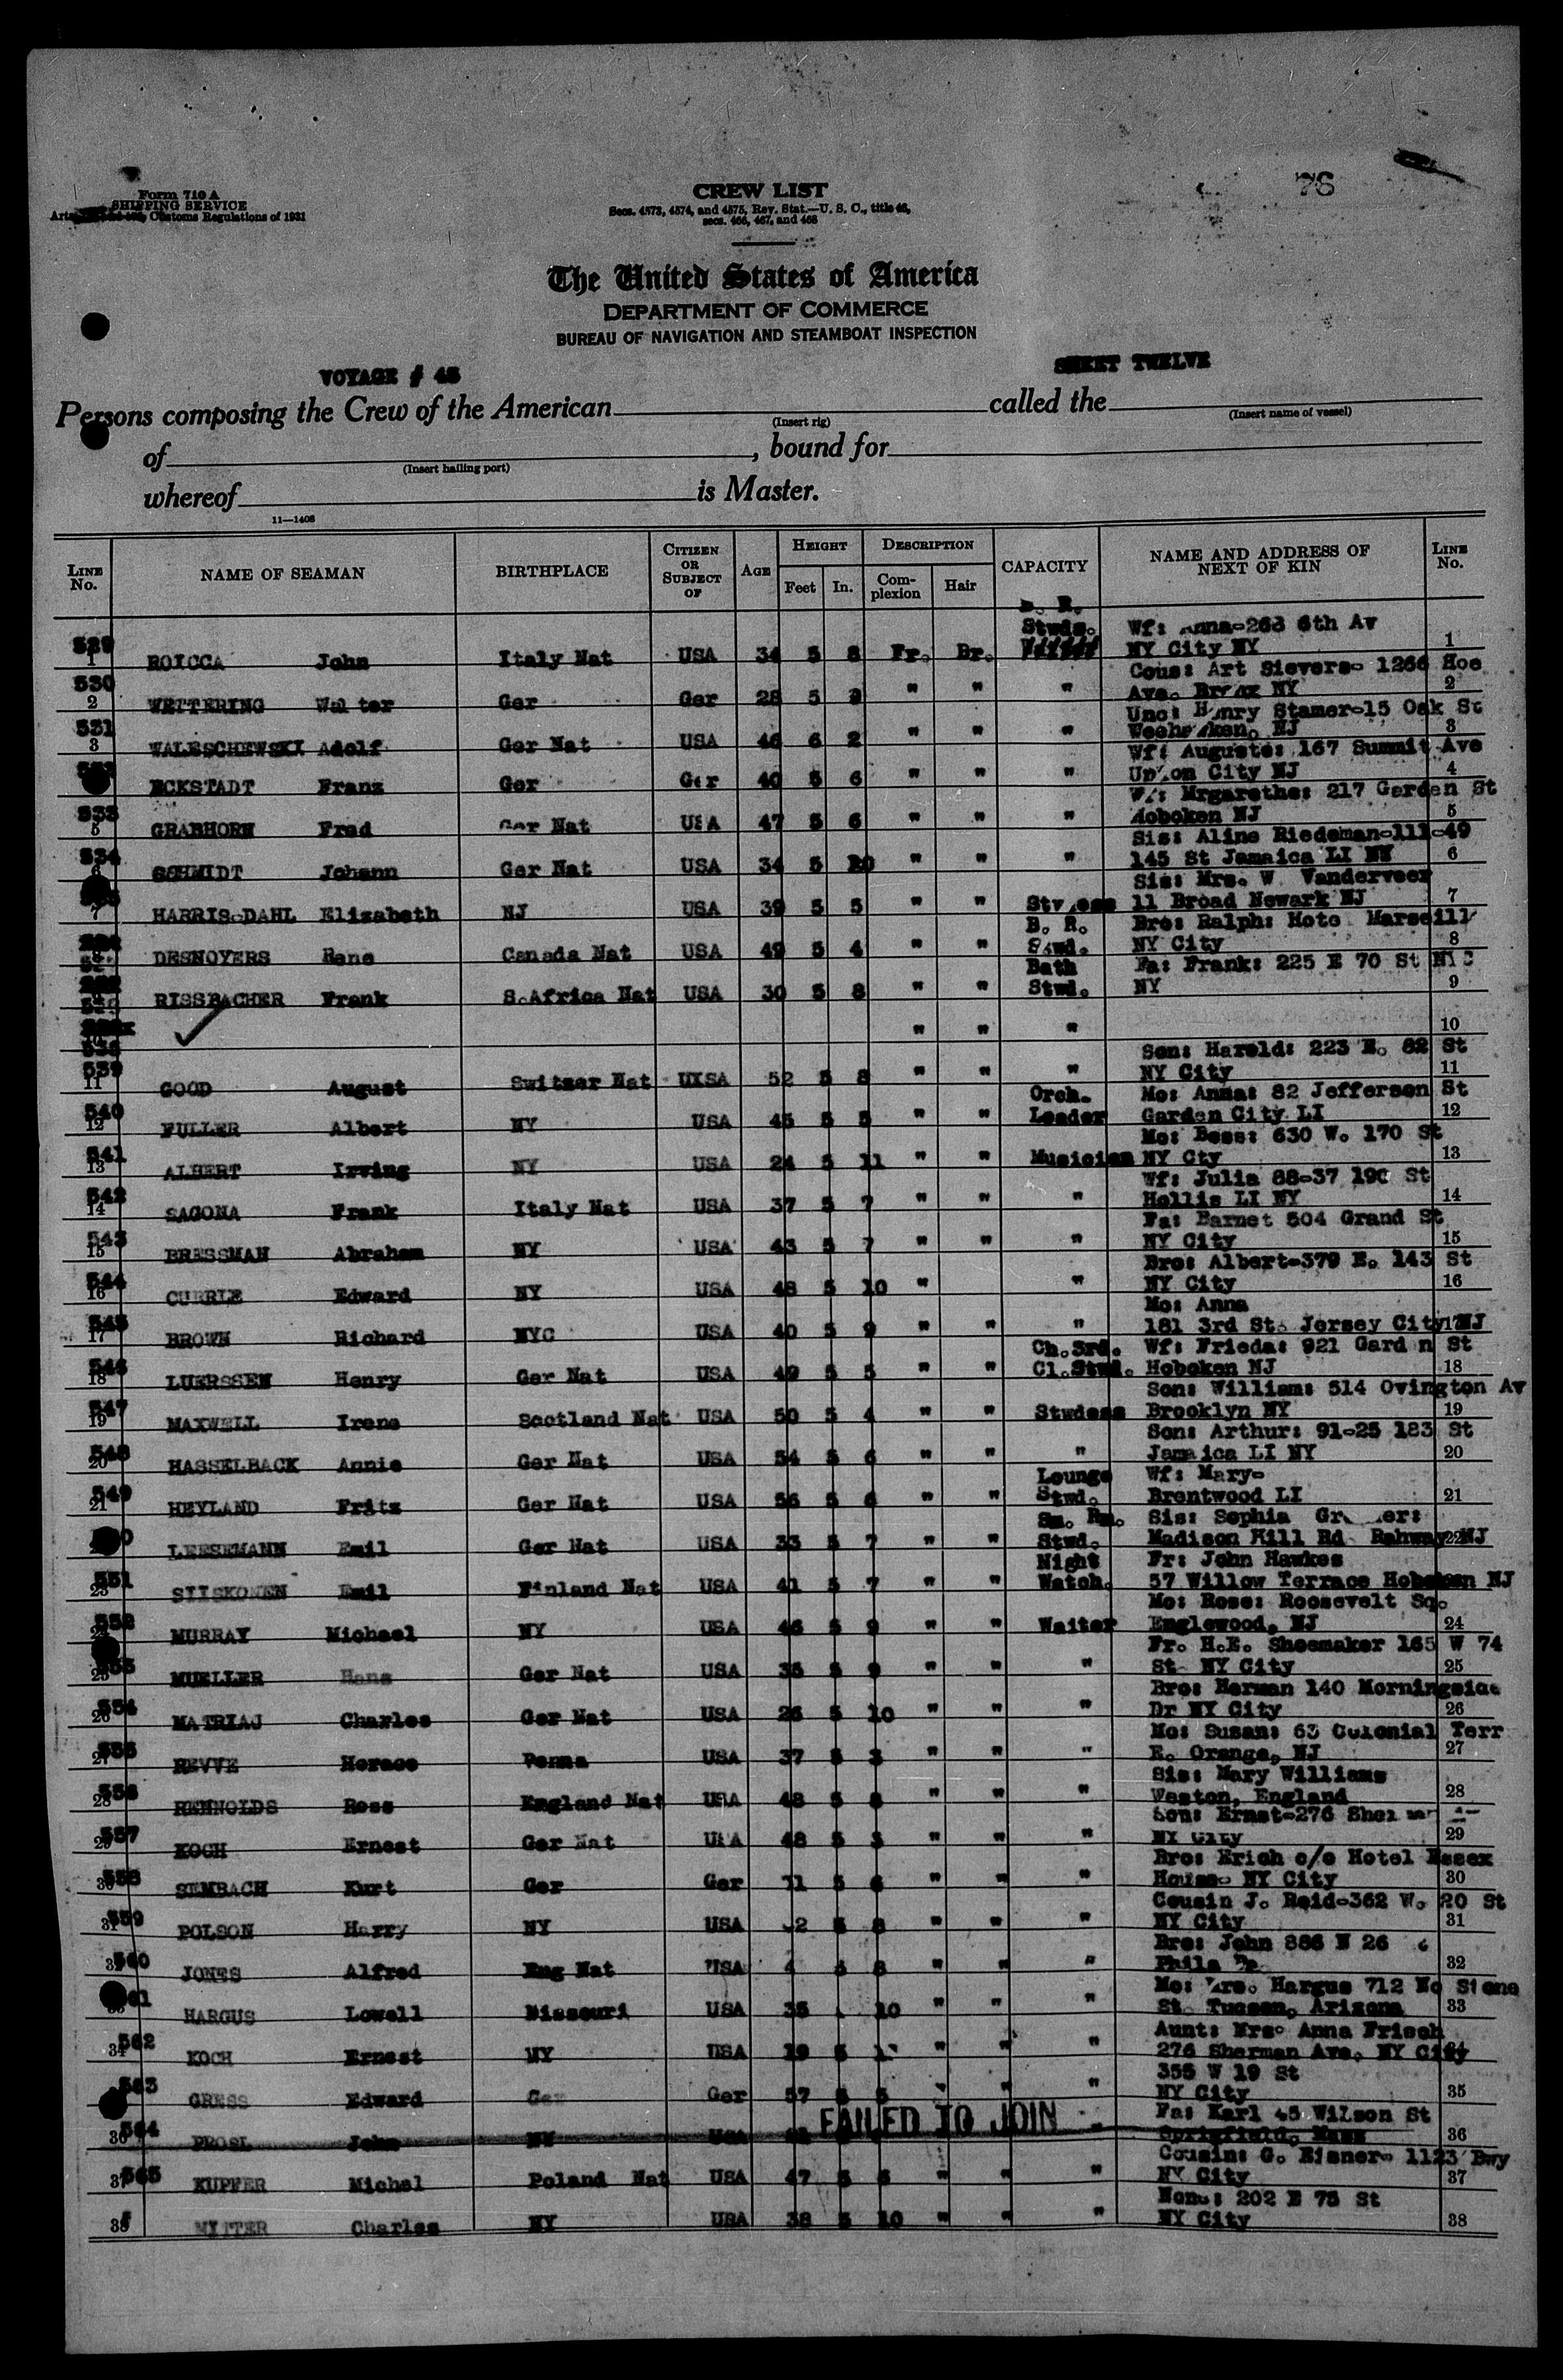 Form 710 A
SHIPPING SERVICE
Customs Regulations of 1931
CREW LIST
Secs. 4573, 4574, and 4575, Rev. Stat.—U. S. C., title 46,
secs. 466, 467, and 468
76
The United States of America
DEPARTMENT OF COMMERCE
BUREAU OF NAVIGATION AND STEAMBOAT INSPECTION
VOYAGE # 45 SHEET TWELVE
Persons composing the Crew of the American called the
(Insert rig) (Insert name of vessel)
of , bound for
(Insert hailing port)
whereof is Master.
11—1408
LINE No. NAME OF SEAMAN BIRTHPLACE CITIZEN OR SUBJECT OF AGE HEIGHT Feet In. DESCRIPTION Complexion Hair CAPACITY NAME AND ADDRESS OF NEXT OF KIN LINE No.
Stwds. Wf: Anna-263 6th Av
529 1 ROICCA John Italy Nat USA 34 5 8 Fr. Br. NY City NY 1
Cous: Art Sievers- 1266 Hoe
530 2 WETTERING Walter Ger Ger 28 5 " " " Ave. Bronx NY 2
Unc: Henry Stamer-15 Oak St
531 3 WALESCHEWSKI Adolf Ger Nat USA 46 6 2 " " " Weehawken, NJ 3
Wf: Auguste: 167 Summit Ave
ECKSTADT Franz Ger Ger 40 5 6 " " " Union City NJ 4
Mrgarethe: 217 Garden St
533 5 GRABHORN Fred Ger Nat USA 47 5 6 " " " Hoboken NJ 5
Sis: Aline Riedeman-111-49
534 6 SCHMIDT Johann Ger Nat USA 34 5 10 " " " 145 St Jamaica LI NY 6
Sis: Mrs. W Vanderveer
7 HARRIS-DAHL Elizabeth NJ USA 39 5 5 " " Stwdess 11 Broad Newark NJ 7
B. R. Bro: Ralph: Hote Marseill
8 DESNOYERS Rene Canada Nat USA 49 5 4 " " Stwd. NY City 8
Bath Fa: Frank: 225 E 70 St NYC
9 RISSBACHER Frank S.Africa Nat USA 30 5 8 " " Stwd. NY 9
538 " " " 10
Son: Harold: 223 E. 82 St
539 11 GOOD August Switzer Nat UXSA 52 5 8 " " " NY City 11
Orch. Mo: Anna: 82 Jefferson St
540 12 FULLER Albert NY USA 45 5 5 " " Leader Garden City LI 12
Mo: Bess: 630 W. 170 St
541 13 ALBERT Irving NY USA 24 5 11 " " Musician NY Cty 13
Wf: Julia 88-37 190 St
542 14 SAGONA Frank Italy Nat USA 37 5 7 " " " Hollis LI NY 14
Fa: Barnet 504 Grand St
543 15 BRESSMAN Abraham NY USA 43 5 7 " " " NY City 15
Bro: Albert-379 E. 143 St
544 16 CURRIE Edward NY USA 48 5 10 " " NY City 16
Mo: Anna
545 17 BROWN Richard NYC USA 40 5 9 " " " 181 3rd St. Jersey City NJ 17
Ch.3rd. Wf: Frieda: 921 Gard n St
546 18 LUERSSEN Henry Ger Nat USA 49 5 5 " " Cl.Stwd. Hoboken NJ 18
Son: William: 514 Ovington Av
547 19 MAXWELL Irene Scotland Nat USA 50 5 4 " " Stwdess Brooklyn NY 19
Son: Arthur: 91-25 183 St
548 20 HASSELBACK Annie Ger Nat USA 54 5 6 " " " Jamaica LI NY 20
Lounge Wf: Mary-
549 21 HEYLAND Fritz Ger Nat USA 56 5 6 " " Stwd. Brentwood LI 21
Sm. Rm. Sis: Sophia
LEESEMANN Emil Ger Nat USA 33 5 7 " " Stwd. Madison Hill Rd Rahway NJ 22
Night Fr: John Hawkes
551 23 SIISKONEN Emil Finland Nat USA 41 5 7 " " Watch. 57 Willow Terrace Hoboken NJ
Mo: Rose: Roosevelt Sq.
552 24 MURRAY Michael NY USA 46 5 9 " " Waiter Englewood, NJ 24
Fr. H.E. Shoemaker 165 W 74
553 25 MUELLER Hans Ger Nat USA 35 5 9 " " " St NY City 25
Bro: Herman 140 Morningside
554 26 MATRIAJ Charles Ger Nat USA 26 5 10 " " " Dr NY City 26
Mo: Susan: 63 Colonial Terr
555 27 REVVE Horace Penna USA 37 5 3 " " " E. Orange, NJ 27
Sis: Mary Williams
556 28 REHNOLDS Ross England Nat USA 48 5 8 " " " Weston, England 28
Son: Ernst-276
557 29 KOCH Ernest Ger Nat USA 48 5 3 " " " NY City 29
Bro: Erich c/o Hotel Essex
558 30 SEMBACH Kurt Ger Ger 5 6 " " " House- NY City 30
Cousin J. Reid-362 W. 20 St
559 31 POLSON Harry NY USA 5 8 " " " NY City 31
Bro: John 886 N 26
560 32 JONES Alfred Eng Nat USA 5 8 " " " Phila 32
Mo: Mrs. Hargus 712 No Stone
33 HARGUS Lowell Missouri USA 35 10 " " " St. Tucson, Arizona 33
Aunt: Mrs. Anna Frisch
562 34 KOCH Ernest NY USA 19 5 " " " 276 Sherman Ave. NY City
355 W 19 St
563 GRESS Edward Ger Ger 57 5 5 " " " NY City 35
FAILED TO JOIN Fa: Karl 45 Wilson St
564 36 PROSL John NY " Springfield, Mass 36
Cousin: G. Eisner- 1123 Bwy
565 37 KUPFER Michel Poland Nat USA 47 5 6 " " " NY City 37
None: 202 E 75 St
38 Charles NY USA 38 5 10 " " " NY City 38